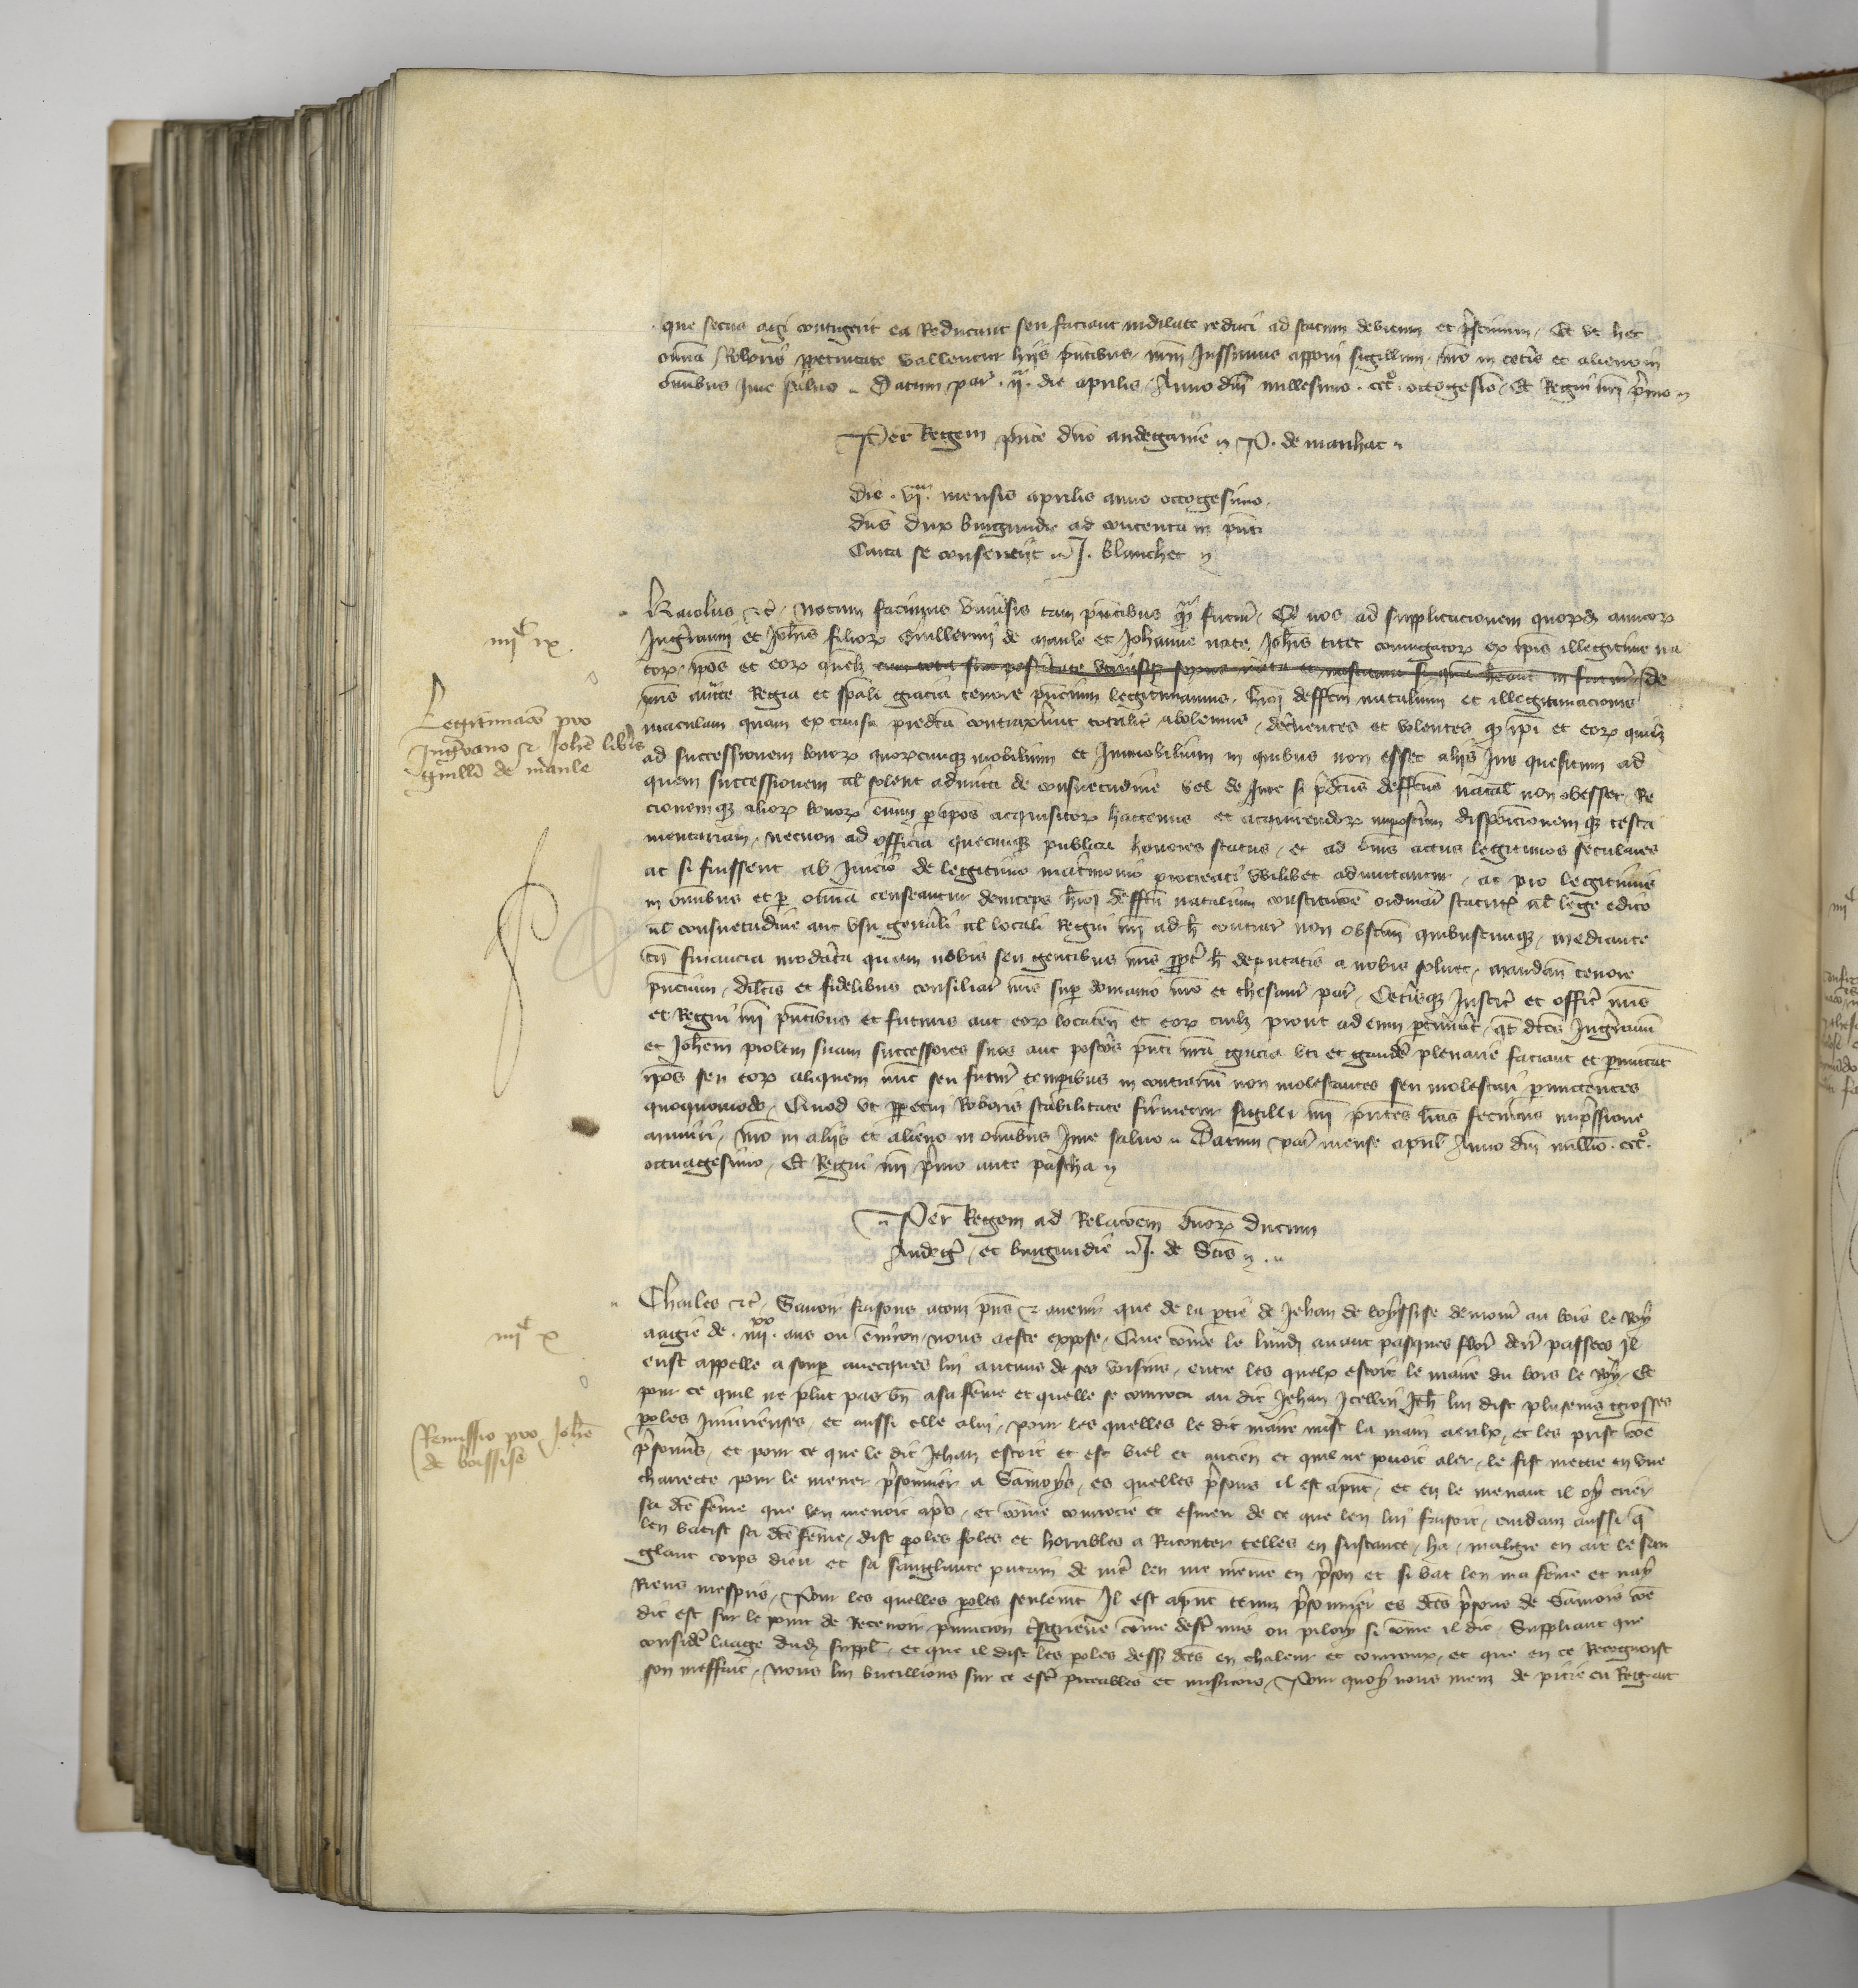 que secus agi contigerit ea Reducant seu faciant indilate reduci ad statum debitum et pristinum. Et ut hec
omnia Roboris perpetuitate vallentur hiis presentibus nostrum Jussimus apponi sigillum. nostro in ceteris et alieno in
omnibus Jure salvo. Datum par. IIa. die aprilis. Anno dni millesimo. CCCo. octogesimo. Et Regni nri primo
Per Regem pnte dno andegavie P. de manhac
Die. VIa. mensis aprilis anno octogesimo.
dns dux burgundie ad contenta in pnti
Carta se consensit J. blanchet
IIIIc IX.
Karolus etc. Notum facimus universis tam pntibus quam futuris. Quod nos ad supplicacionem quorumdam amicorum
Ingeranni et Johis filiorum Guillermi de manle et Johanne nate Johis conjugatorum ex ipis illegitime na
torum. ipos et eorum quemlibet de
nris aucte Regia et spali gracia tenore pncium legitimamus. hmoi deffectum natalium et illegitimacionis
Legitimacio pro
Ingeranno et Johe liberis
guilli de manle
maculam quam ex causa predicta contraxerunt totaliter abolemus. decernentes et volentes quod ipi et eorum quilibet
ad successionem bonorum quorumcumque mobilium et Immobilium in quibus non esset aliis Jus quesitum ad
quem successionem vel solent admitti de consuetudine vel de Jure si predictus deffectus natal non obesset. Re
cionemque aliorum bonorum eciam per ipos acquisitorum hactenus et acquirendorum imposterum disposicionemque testa
mentariam. necnon ad officia quecumque publica honores status. et ad omnis actus legitimos seculares
ac si fuissent ab Inicio de legitimo matrimonio procreati ubilibet admittantur. ac pro legitimis
in omnibus et per omnia censeantur deinceps hmoi deffectu natalium constitucione ordinacione statuto vel lege edicto
vel consuetudine aut usu generali vel locali Regni nri ad hoc contrariis non obstantibus quibuscumque. mediante
tamen financia moderata quam nobis seu gentibus nris propter hoc deputatis a nobis solvet. mandantes tenore
pncium. dilectis et fidelibus consiliariis nris super domanio nro et thesaurariis par. Ceterisque Justiciariis et officiariis nris
et Regni nri pntibus et futuris aut eorum locatenentibus et eorum cuilibet prout ad eum pertinuerit. quatenus dictos Ingerannum
et Johem prolem suam successores suos aut posteros pnti nra gracia uti et gaudere plenarie faciant et permittant
ipos seu eorum aliquem nunc seu futuris temporibus in contrarium non molestantes seu molestari permittentes
quoquomodo. Quod ut perpetui Roboris stabilitate firmetur sigilli nri pntes litteras fecimus impressione
muniri. nro in aliis et alieno in omnibus Jure salvo. Datum par mense april Anno dni millio. CCCo.
octuagesimo. Et Regni nri primo ante pascha
Per Regem ad Relacionem dnorum ducum
Andeg. et burgundie J. de Scis
IIIIc X
Charles etc. Savoir faisons a tous pns et avenir que de la partie de Jehan de boyssise demourant au bois le Roy
aagie de. IIIIxx. ans ou environ. nous a este expose. Que comme le lundi avant pasques flories derrenierement passees Il
eust appelle a souper avecques lui aucuns de ses voisins. entre les quelx estoit le maire du bois le Roy. Et
pour ce quil ne plut pas bien a sa feme et quelle se courrouca au dit Jehan Icellui Jeh lui dist plusieurs grosses
paroles Injurieuses. et aussi elle a lui. pour les quelles le dit maire mist la main a eulx. et les prist come
Remissio pro Johe
de boissise
prisonniers. et pour ce que le dit Jehan estoit et est viel et ancien et quil ne povoit aler. le fist mettre en une
charrecte pour le mener prisonnier a Samoys. es quelles prisons il est a pnt. et en le menant il oy crier
sa dce feme que len menoit apres. et comme courroucie et esmeu de ce que len lui faisoit. cuidant aussi que
len batist sa dce feme. dist paroles foles et horribles a Raconter telles en sustance. ha. maugre en ait le san
glant corps dieu et sa sanglante putain de mere len me meinne en prison et si bat len ma feme et nay
Riens mespris. Pour les quelles paroles seulement Il est a pnt tenuz prisonnier es dces prisons de Samois come
dit est sur le point de Recevoir punicion Esgrieve comme destre mis ou pilory si comme il dit. Suppliant que
considere laage dudit suppl. et que il dist les paroles dessus dces en chaleur et courroux. et que en ce Recognoist
son meffait. nous lui vueillions sur ce estre piteables et misericors. Pour quoy nous meuz de pitie eu Regart